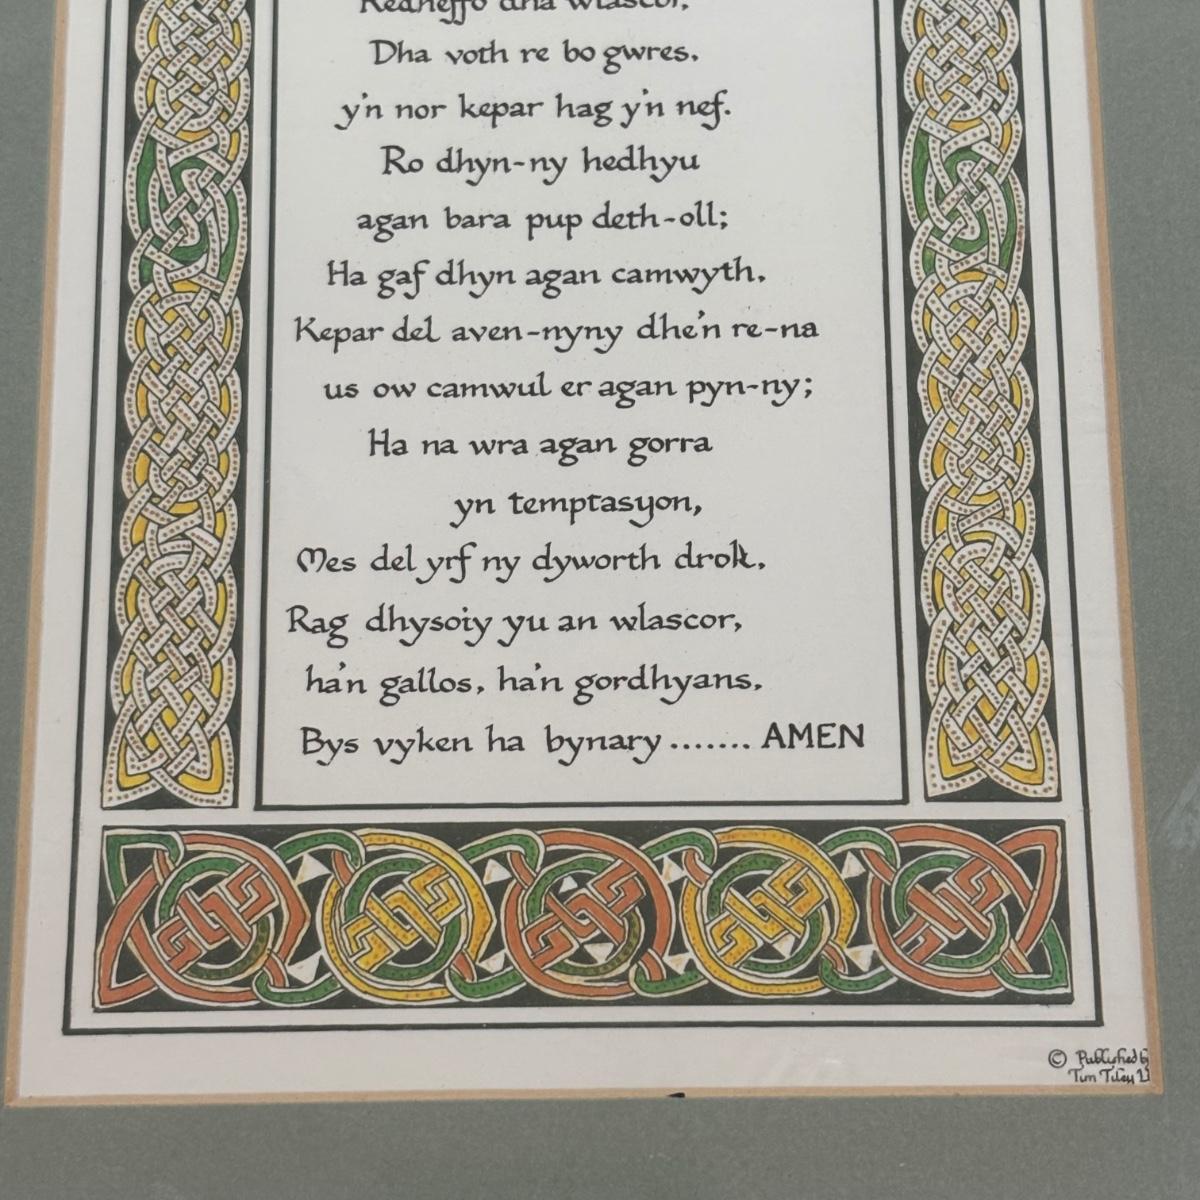 dha wlascor,
Dha voth re bo gwres,
y'n nor kepar hag y'n nef.
Ro dhyn-ny hedhyu
agan bara pup deth-oll;
Ha gaf dhyn agan camwyth,
Kepar del aven-nyny dhe'n re-na
us ow camwul er agan pyn-ny;
Ha na wra agan gorra
yn temptasyon,
Mes del yrf ny dyworth drok,
Rag dhysoiy yu an wlascor,
ha'n gallos, ha'n gordhyans,
Bys vyken ha bynary ....... AMEN
© Published
Tim Tiley